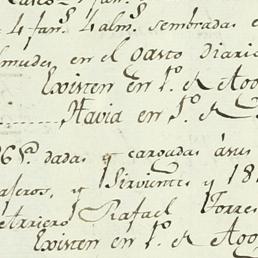 4 fan.s 4 alm.s sembradas e
lmudes, en el Gasto Diari
Existen en 1.º de Ago
Havia en 1.º de
6 S.s dadas y caroudas á sus
aferos, y Sirvientes y 18
Arriero Rafael Torres
Existen en 1.º de Ago